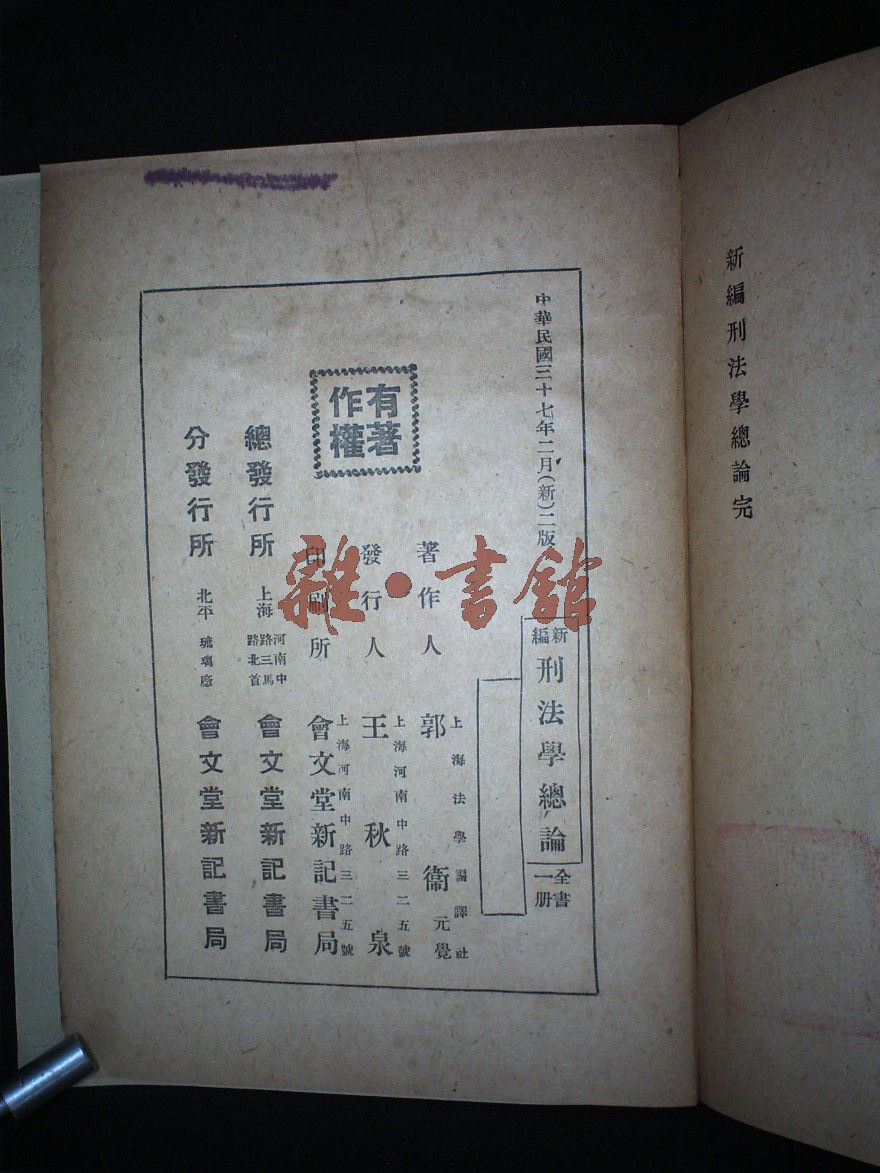 新編刑法學總論完
中華民國三十七年二月(新)二版
新編
刑法學總論
全書一册
上海法學編譯社
著作人 郭衞元覺
上海河南中路三二五號
發行人 王秋泉
上海河南中路三二五號
印刷所 會文堂新記書局
有著作權
總發行所 上海 河南中路三馬路北首 會文堂新記書局
分發行所 北平 琉璃廠 會文堂新記書局
雜·書館